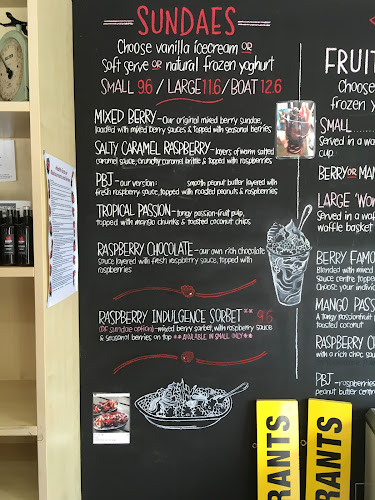 SUNDAES
Choose vanilla icecream OR
soft serve OR natural frozen yoghurt
SMALL 9.6 / LARGE 11.6 / BOAT 12.6
MIXED BERRY - Our original mixed berry sundae,
loaded with mixed berry sauces & topped with seasonal berries
SALTY CARAMEL RASPBERRY - layers of warm salted
caramel sauce, crunchy caramel brittle & topped with raspberries
PBJ - our version: smooth peanut butter layered with
fresh raspberry sauce, topped with roasted peanuts & raspberries
TROPICAL PASSION - tangy passion-fruit pulp,
topped with mango chunks & toasted coconut chips
RASPBERRY CHOCOLATE - our own rich chocolate
sauce layered with fresh raspberry sauce, topped with
raspberries
RASPBERRY INDULGENCE SORBET ** 9.5
(OF sundae option) - mixed berry sorbet, with raspberry sauce
& seasonal berries on top ** AVAILABLE IN SMALL ONLY **
FRUIT
Choose
frozen y
SMALL......
Served in a wa
cup
BERRY OR MAN
LARGE 'WO
Served in a wa
waffle basket
BERRY FAMO
Blended with mixed
sauce centre topped
Choose your individ
MANGO PASS
A tangy passionfruit
toasted coconut
RASPBERRY C
with a rich choc sau
PBJ - raspberries
peanut butter cen
RANTS
RANTS